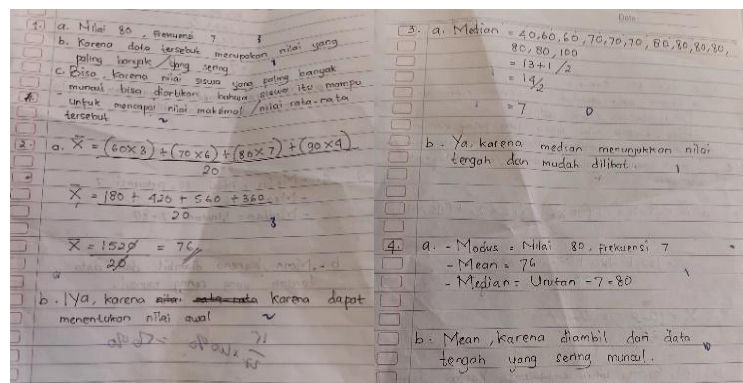 1. a. Nilai 80, Frekuensi 7 3
b. Karena data tersebut merupakan nilai yang
paling banyak / yang sering
c. Bisa, karena nilai siswa yang paling banyak
muncul bisa diartikan, bahwa siswa itu mampu
untuk mencapai nilai maksimal / nilai rata-rata
tersebut 2
2. a. X̄ = (60×3) + (70×6) + (80×7) + (90×4)
20
X̄ = 180 + 420 + 560 + 360
20
3
X̄ = 1520 = 76
20
b. IYa, karena nilai rata-rata karena dapat
menentukan nilai awal 2
3. a. Median = 40,60,60,70,70,70,80,80,80,80,
80,80,100
= 13+1/2
= 14/2
= 7 0
b. Ya, karena median menunjukkan nilai
tengah dan mudah dilihat. 1
4. a. - Modus = Nilai 80, frekuensi 7
- Mean = 76
- Median = Urutan -7 = 80 1
b. Mean, karena diambil dari data
tengah yang sering muncul.